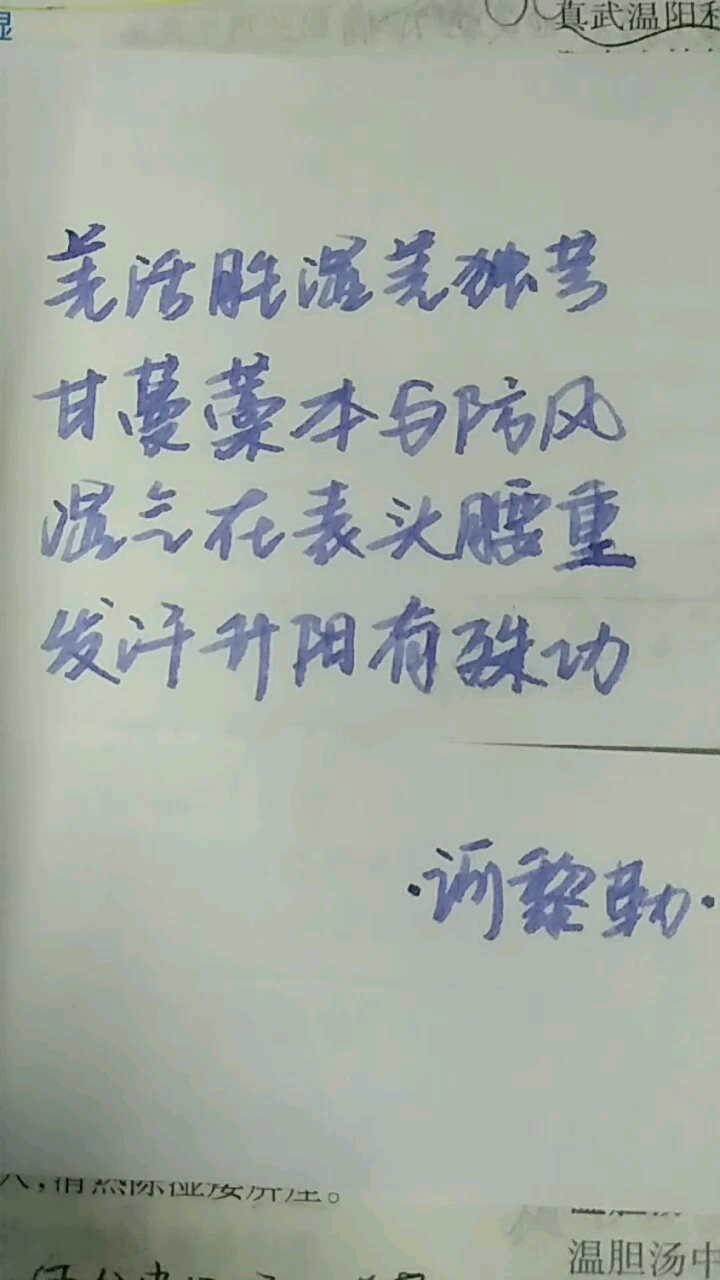 真武温阳利
羌活胜湿羌独芎
甘蔓藁本与防风
湿气在表头腰重
发汗升阳有殊功
·诃黎勒·
温胆汤中